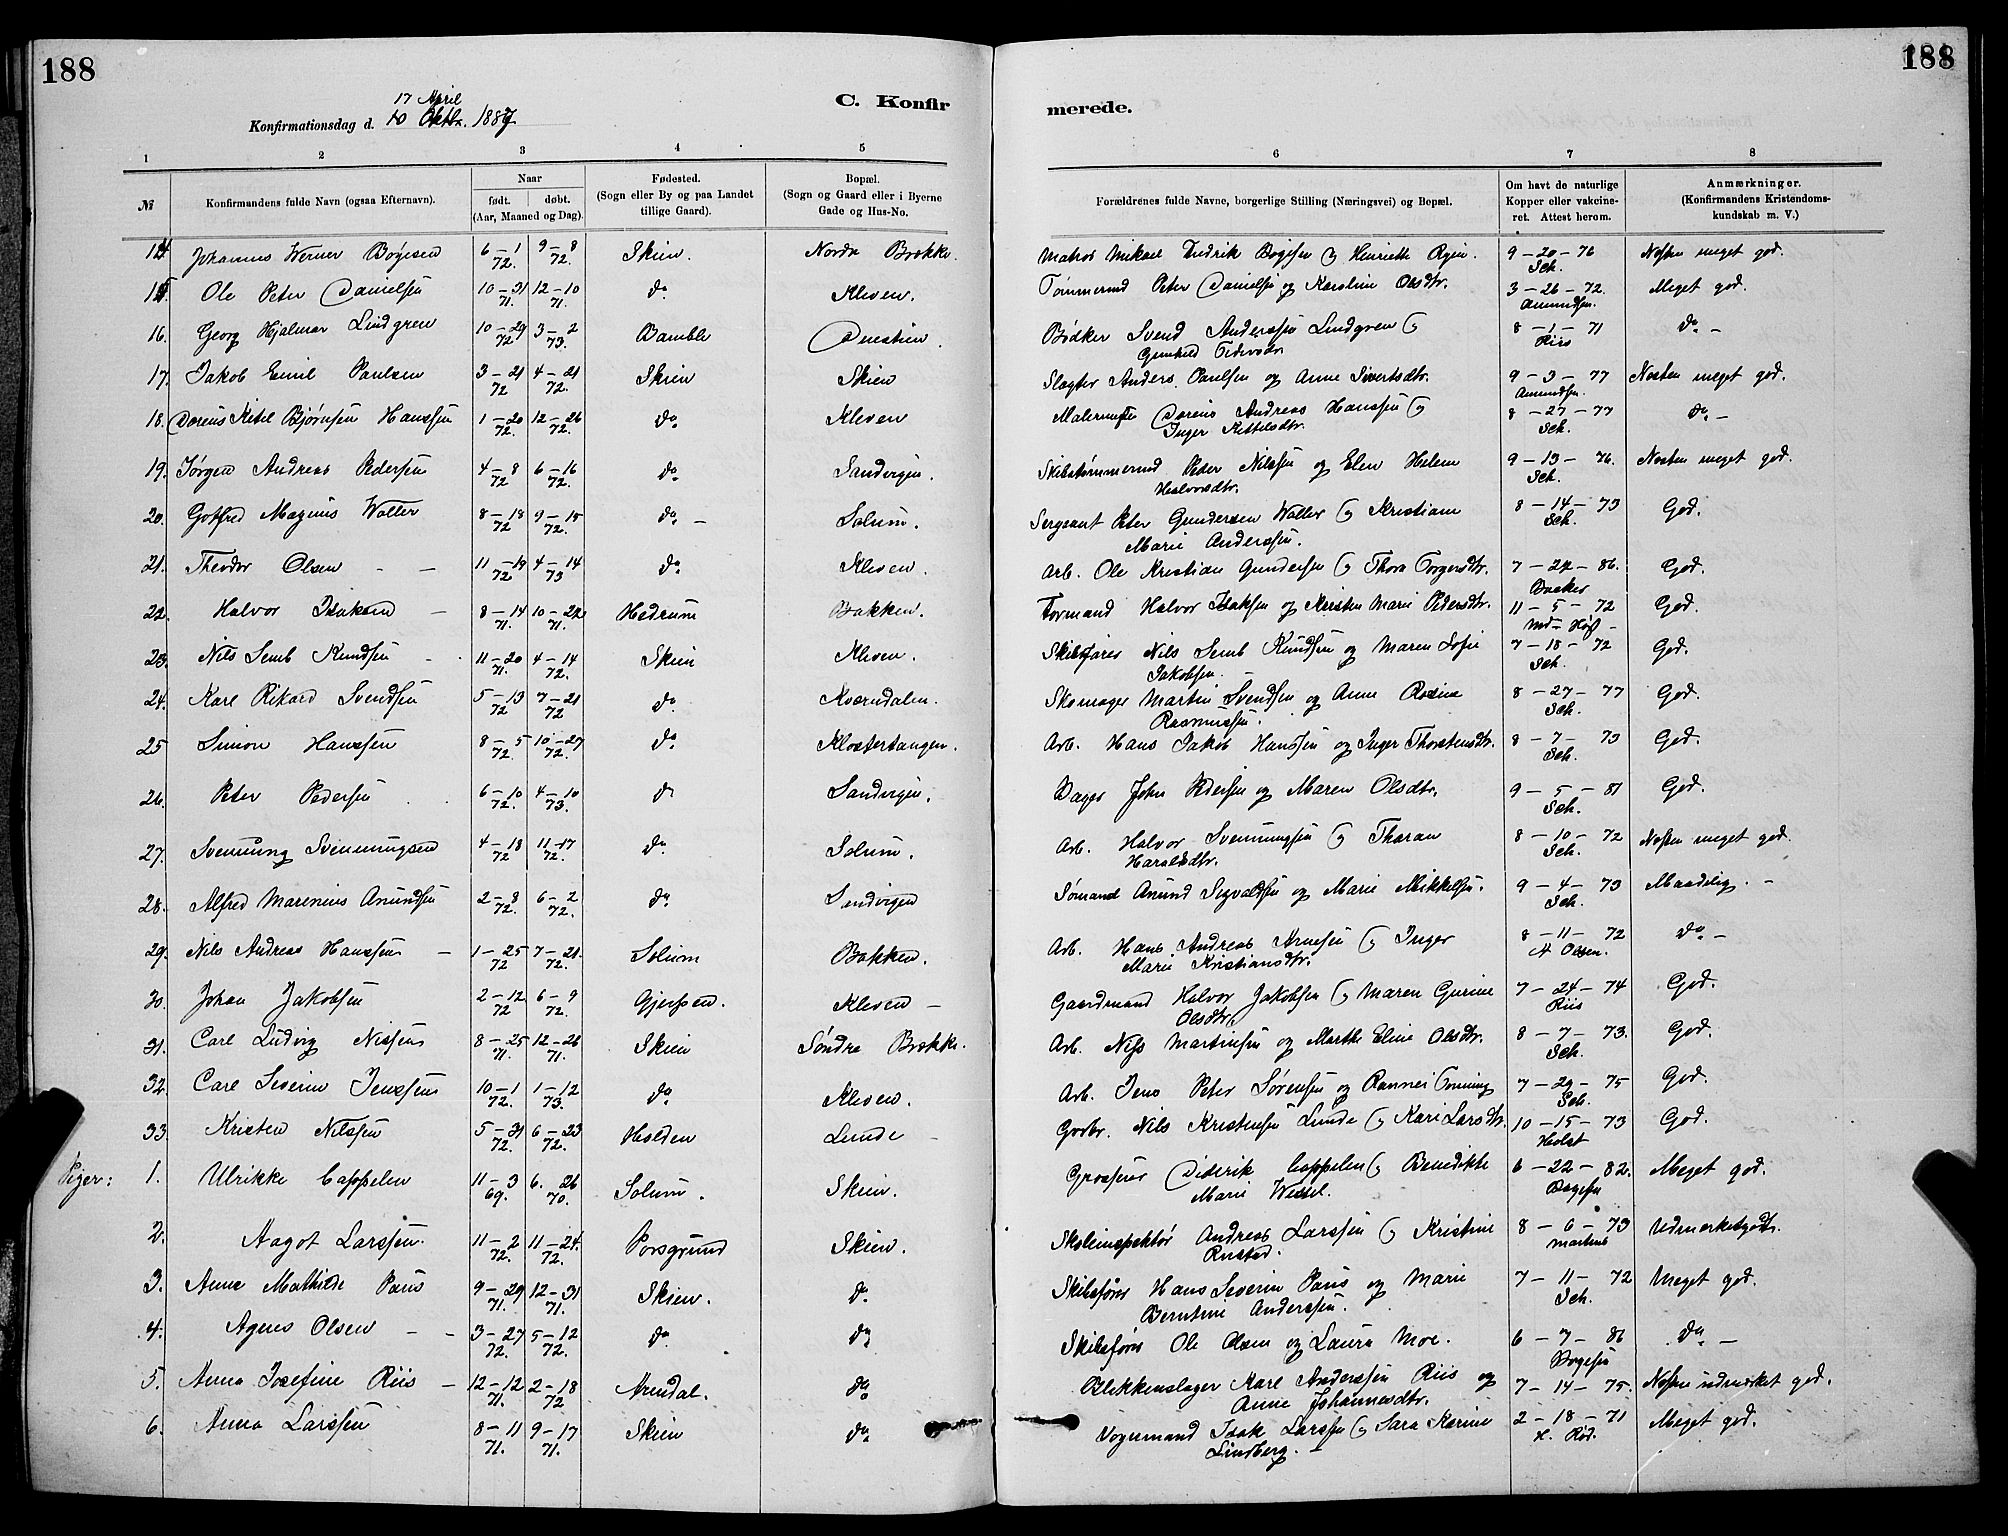 188
188
17 April
C. Konfir
merede.
Konfirmationsdag d. 10 Oktbr. 1887
1 2 3 4 5 6 7 8
№ Konfirmandens fulde Navn (ogsaa Efternavn). Naar født. døbt. (Aar, Maaned og Dag). Fødested. (Sogn eller By og paa Landet tillige Gaard). Bopæl. (Sogn og Gaard eller i Byerne Gade og Hus-No. Forældrenes fulde Navne, borgerlige Stilling (Næringsvei) og Bopæl. Om havt de naturlige Kopper eller vakcineret. Attest herom. Anmærkninger. (Konfirmandens Kristendomskundskab m. V.)
14. Johannes Werner Bøgesen 6–1 72. 9–8 72. Skien. Nordre Brække. Matros Mikael Fredrik Bøgesen og Henriette 9–20–76 Sch. Næsten meget god.
15. Ole Peter Danielsen 10–31 71. 12–10 71. do. Kleven. Tømmermd Peter Danielsen og Karoline Olsdtr. 3–26–72. Amundsen. Meget god.
16. Georg Hjalmar Lindgren 10–29 72 3–2 73. Bamble Bødker Svend Anderssen Lindgren og
Gunhild 8–1–71 Riis do –
17. Jakob Emil Paulsen 3–21 72 4–21 72. Skien Skien Slagter Anders Paulsen og Anne Sivertsdtr. 9–3–77 Amundsen. Næsten meget god.
18. Dorenius Kitel Bjørnsen Hanssen 1–20 72. 12–26 72. do. Kleven Malermester Dorenius Andreas Hanssen og
Inger Kittelsdtr. 8–27–77 Sch. do –
19. Jørgen Andreas Pedersen 4–8 72 6–16 72. do. Sandvigen. Skibstømmermd Peder Nilssen og Elen Helene
Halvorsdtr. 9–13–76. Sch. Næsten meget god.
20. Gotfred Magnus Walter 8–18 72 9–15 72. do. – Solum. Sergeant Peter Gundersen Walter og Kristiane
Marie Anderssen. 8–14–73 Sch. God.
21. Theodor Olsen – – 11–19 72 4–14 73 do. Kleven. Arb. Ole Kristian Gundersen og Thora Torgersdtr. 7–22–86. Backer God.
22. Halvor Isaksen – 8–14 71. 10–22 71. Hedrum Bakken. Formand Halvor Isaksen og Kirsten Marie Pedersdtr. 11–5–72 God.
23. Nils Semb Knudsen – 11–20 71. 4–14 72. Skien Kleven. Skibsfører Nils Semb Knudsen og Maren Sofie
Jakobsen. 7–18–72 Sch. God.
24. Karl Rikard Svendsen 5–13 72 7–21 72 do. Kværndalen. Skomager Martin Svendsen og Anne Rosine
Rasmussen. 8–27–77 Sch. God.
25 Simon Hanssen 8–5 72. 10–27 72. do. Klostertangen. Arb. Hans Jakob Hanssen og Inger Thorstensdtr. 8–7–73 Sch. God.
26. Peter Pedersen 6–10 72. 4–10 73. do Sandvigen. Bager John Pedersen og Maren Olsdtr. 9–5–81 Sch. God.
27. Svennung Svennungsen 4–18 72 11–17 72. do. Solum. Arb. Halvor Svennungsen og Tharan
Haralsdtr. 8–10–72 Sch. Næsten meget god.
28. Alfred Marenius Anundsen 2–8 72. 6–2 72. do. Sandvigen Sømand Anund Sigvaldsen og Marie Mikkelsen. 9–4–73 Sch. Maadelig. –
29. Nils Andreas Hanssen – 1–25 72 7–21. 72. Solum Bakken. Arb. Hans Andreas Arnesen og Inger
Marie Kristiansdtr. 8–11–72 Olsen. do –
30. Johan Jakobsen 2–12 72 6–9 72. Gjerpen. Kleven – Gaardmand Halvor Jakobsen og Maren Gurine
Olsdtr. 7–24–74 Riis God.
31. Carl Ludvig Nissen 8–25 71. 12–26 71. Skien Søndre Brække. Arb. Niss Martinsen og Marthe Eline Olsdtr. 8–7–73. Sch. God.
32. Carl Severin Jenssen 10–1 72. 1–12 73. do. Kleven. Arb. Jens Peter Sørensen og 7–29–75 Sch. God.
33. Kristen Nilssen 5–31 72. 6–23 72. Holden Lunde – Gbr. Nils Kristensen Lunde og Kari Larsdtr. 10–15–73 Holst God.
Piger:
1. Ulrikke Cappelen 11–3 69. 6. 26 70. Solum. Skien. Grosserer Diderik Cappelen og Benedikte
Marie Wessel. 6–22–82. Bøgesen Meget god.
2. Aagot Larssen. 11–2 72. 11–24. 72. Porsgrund Skien. Skoleinspektør Andreas Larssen og Kristine
Rustad. 8–6–73 Martens Udmærketgodt.
3. Anne Mathilde Paus 9–29 71. 12–31 71. Skien. do. Skibsfører Hans Severin Paus og Marie
Berntine Anderssen. 7–11–72 Sch. Meget god.
4. Agnes Olsen – – 3–27 72. 5–12 72. do do. Skibsfører Ole Olsen og Laura Moe. 6–7–86 Bøgesen do –
5. Anna Josefine Riis – 12–12 71. 2–18 72 Arendal. do. Blikkenslager Karl Anderssen Riis og
Anne Johannesdtr. 7–14–75. Næsten udmærket god.
6. Anna Larssen 8–11 71. 9–17 71. Skien do. Vognmand Isak Larssen og Sara Karine
Lindberg. – 2–18–71 Rød. Meget god.